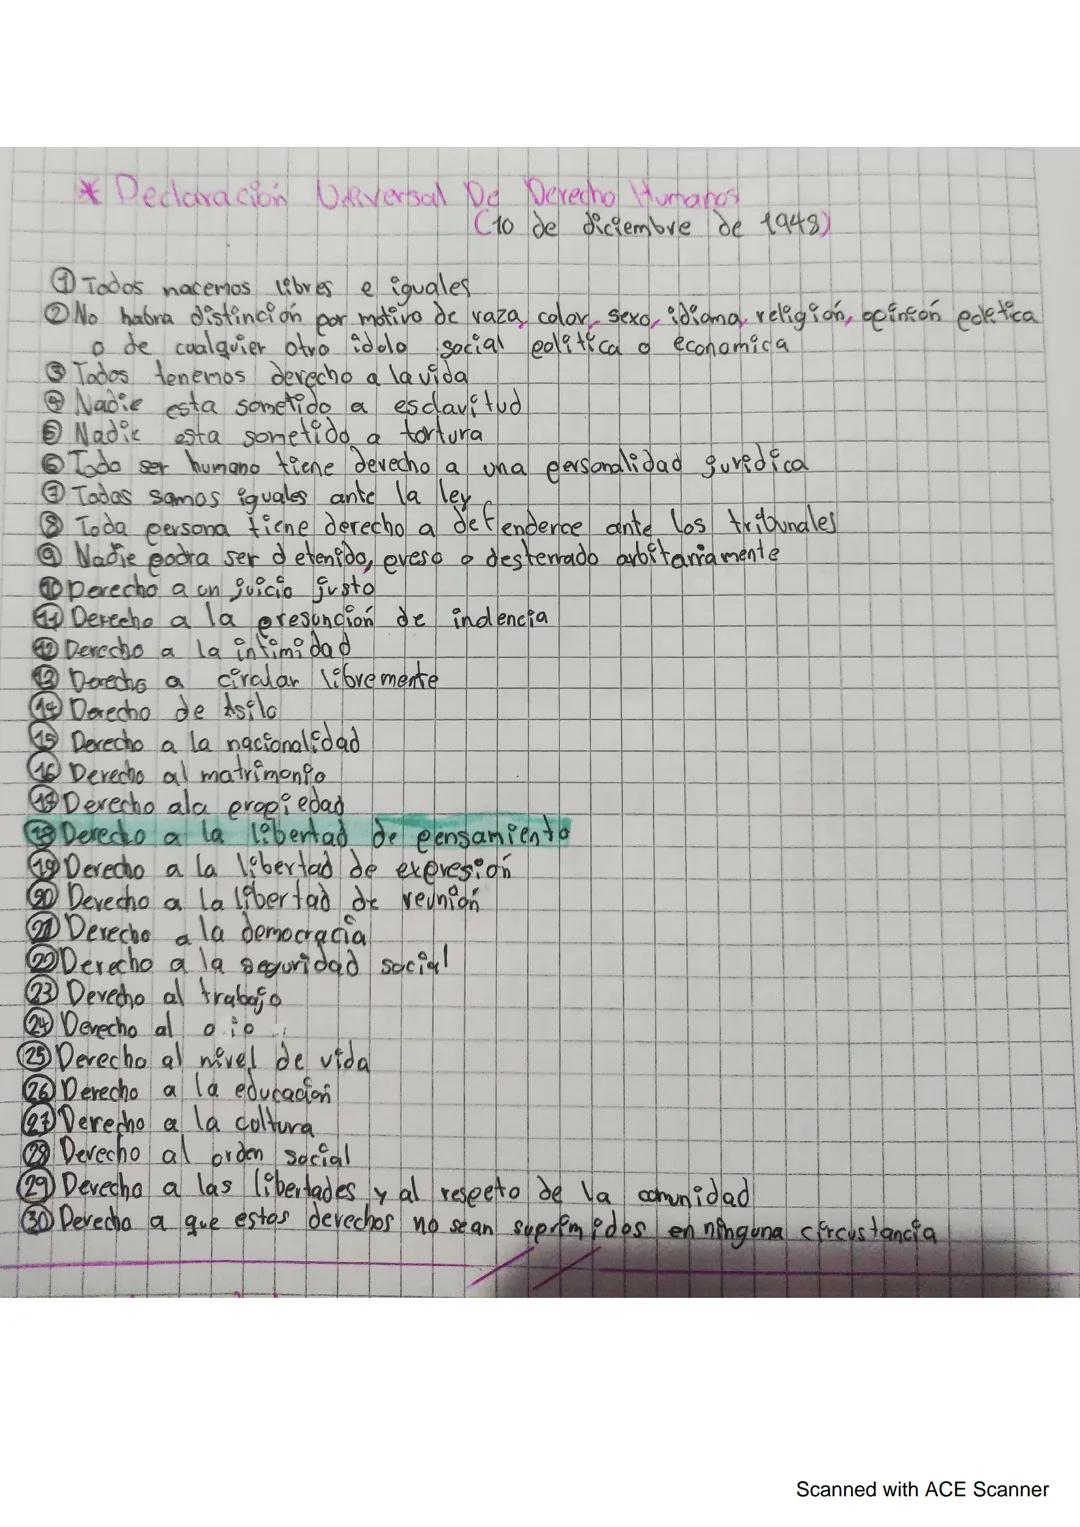 * Declaración Universal De Derecho Humanos
(10 de diciembre de 1948)
① Todos nacemos libres e iguales
② No habra distinción por motivo de raza, color, sexo, idioma, religión, opinión poletica
o de cualquier otro idolo social politica o economica
③ Todos tenemos derecho a la vida
④ Nadie esta sometido a esclavitud
⑤ Nadie esta sometido a tortura
⑥ Todo ser humano tiene derecho a una personalidad juredica
⑦ Todos somos iguales ante la ley
⑧ Toda persona tiene derecho a defenderce ante los tribunales
⑨ Nadie podra ser detenido, preso o desterrado arbitariamente
⑩ Derecho a un juicio justo
⑪ Derecho a la presunción de indencia
⑫ Derecho a la intimidad
⑬ Derecho a circular libremente
⑭ Derecho de Asilo
⑮ Derecho a la nacionalidad
⑯ Derecho al matrimonio
⑰ Derecho ala propiedad
⑱ Derecho a la libertad de pensamiento
⑲ Derecho a la libertad de expresión
⑳ Derecho a la libertad de reunión
㉑ Derecho a la democracia
㉒ Derecho a la seguridad social
㉓ Derecho al trabajo
㉔ Derecho al
㉕ Derecho al nivel de vida
㉖ Derecho a la educación
㉗ Derecho a la cultura
㉘ Derecho al orden social
㉙ Derecho a las libertades y al respeto de la comunidad
㉚ Derecho a que estos derechos no sean suprimidos en ninguna circustancia
Scanned with ACE Scanner